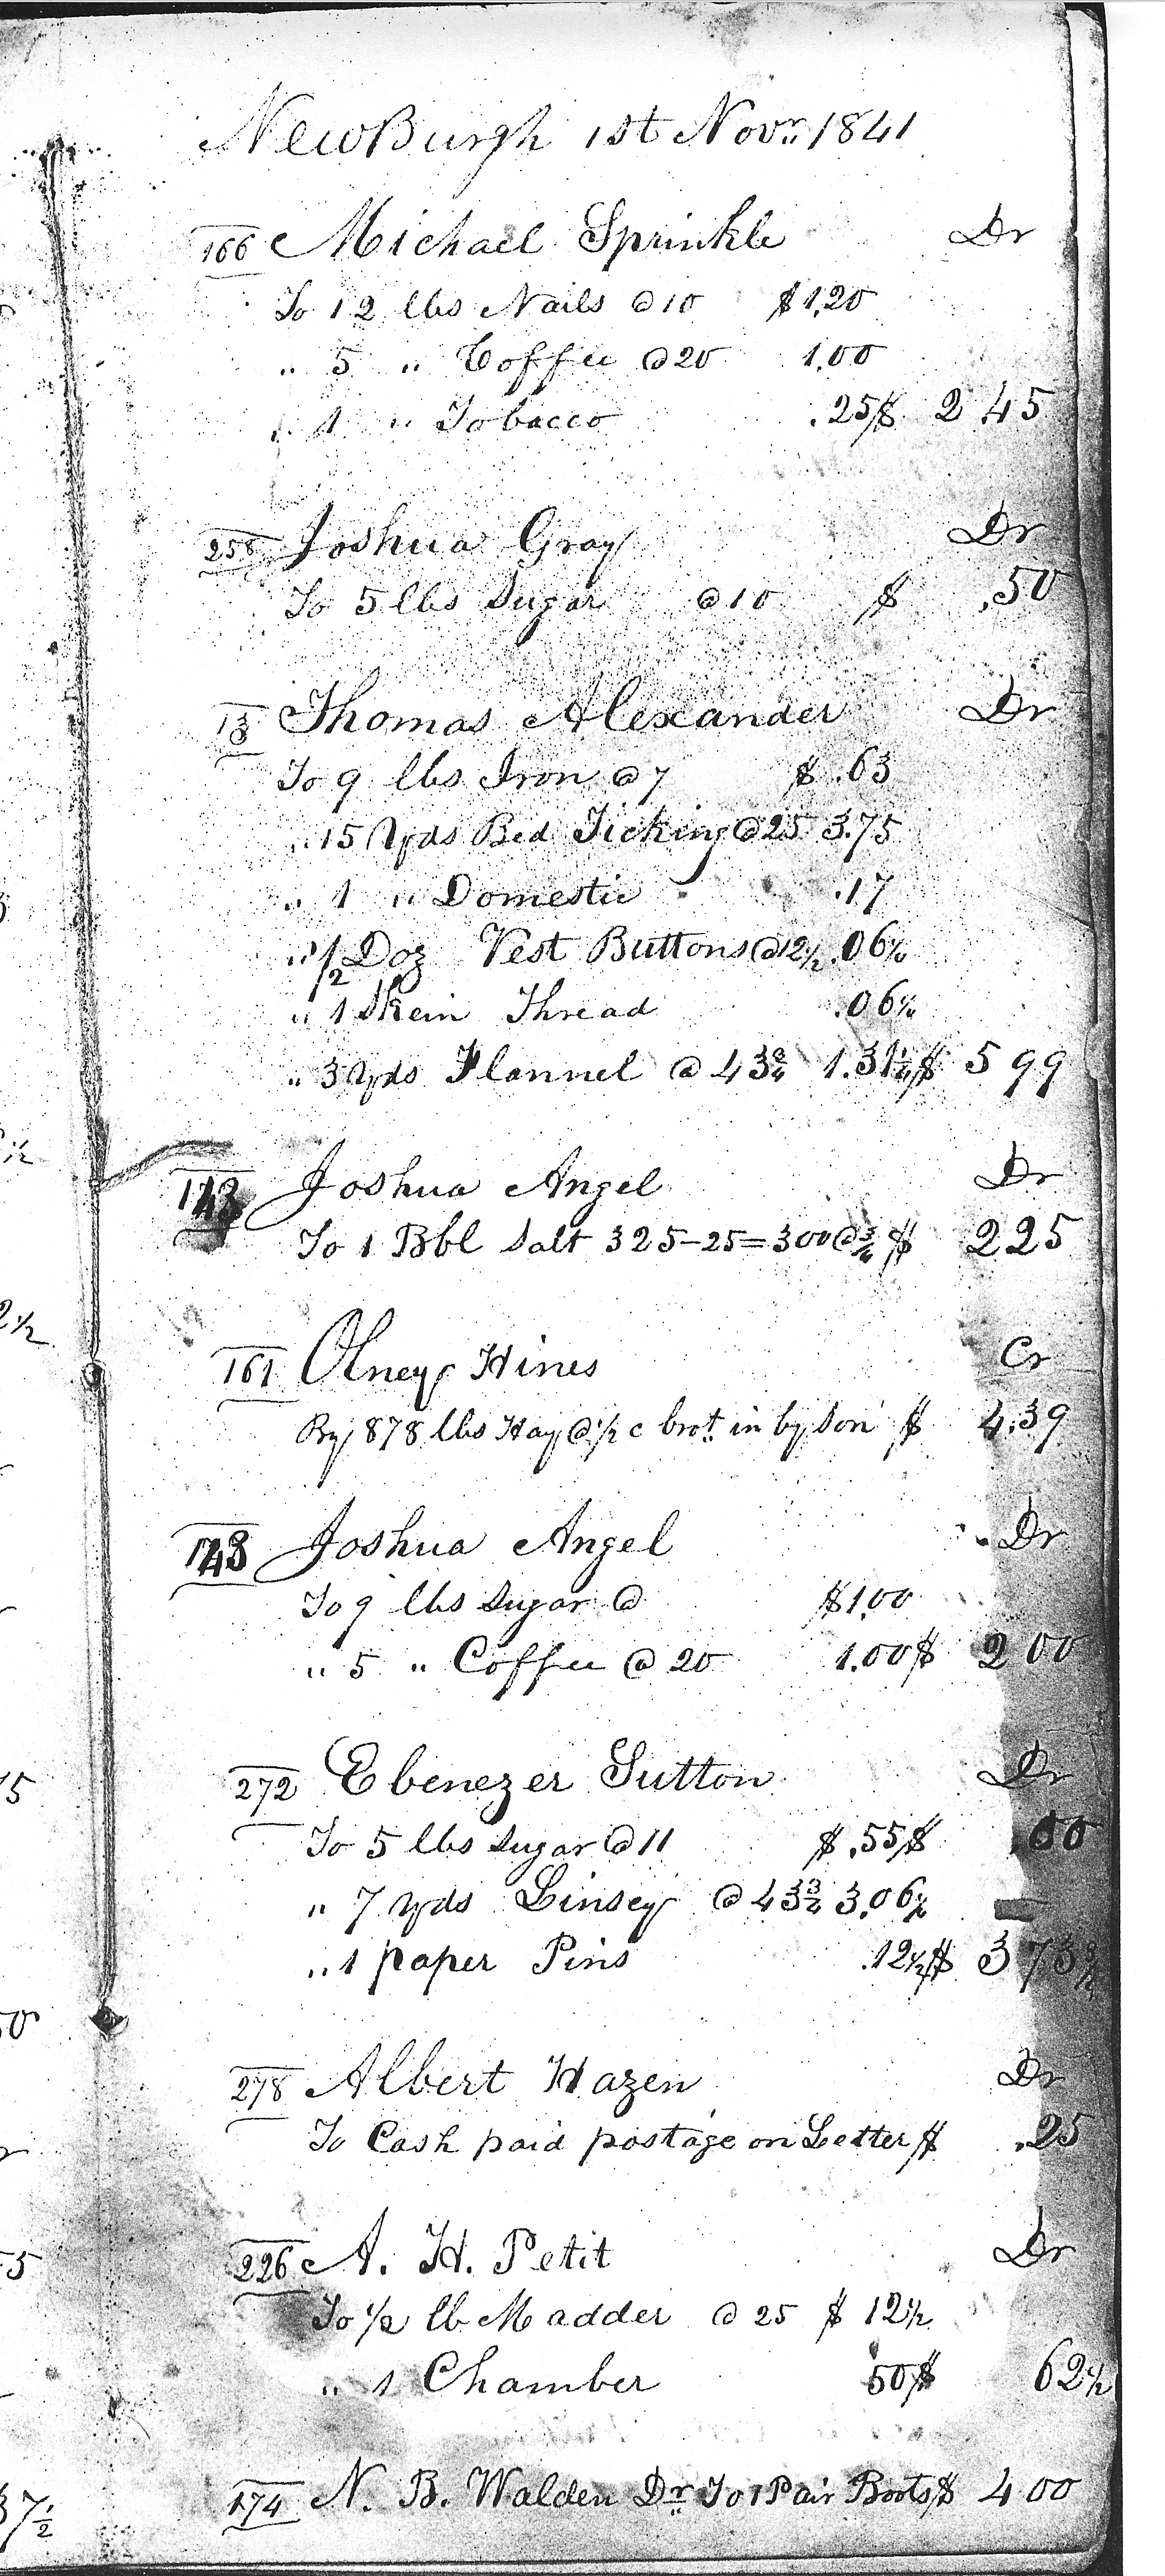 NewBurgh 1st Novr. 1841
166 Michael Sprinkle Dr
To 12 lbs Nails @10 $1.20
" 5 " Coffee @20 1.00
" 1 " Tobacco .25 $ 2 45
258 Joshua Gray Dr
To 5 lbs Sugar @10 $ .50
Thomas Alexander Dr
To 9 lbs Iron @7 $ .63
" 15 Yds Bed Ticking @25 3.75
" 1 " Domestic .17
" 1/2 Doz Vest Buttons @12½ .06¼
" 1 Skein Thread .06¼
" 3 Yds Flannel @ 43¾ 1.31¼ $ 5 99
Joshua Angel Dr
To 1 Bbl Salt 325-25=300@¾ $ 2.25
161 Olney Hines Cr
By 878 lbs Hay @ ½ c brot. in by Son $ 4.39
Joshua Angel Dr
To 9 lbs Sugar @ $1.00
" 5 " Coffee @ 20 1.00 $ 2 00
272 Ebenezer Sutton Dr
To 5 lbs Sugar @11 $ .55 $
" 7 Yds Linsey @ 43¾ 3.06¼
" 1 paper Pins .12½ $ 3 73½
278 Albert Hazen Dr
To Cash paid postage on Letter $ .25
226 A. H. Petit Dr
To ½ lb Madder @ 25 $ 12½
" 1 Chamber 50 $ 62½
174 N. B. Walden Dr. To 1 Pair Boots $ 4 00
5
2½
50
5
37½